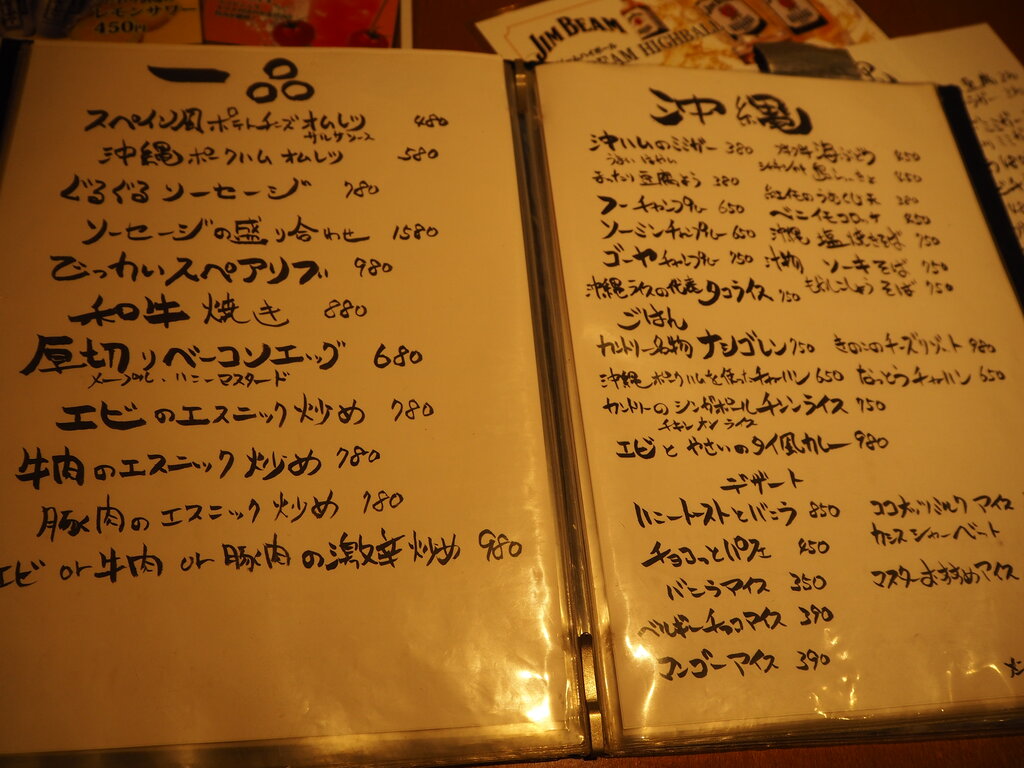 レモンサワー
450円
JIM BEAM
BEAM HIGHBALL
一品
スペイン風ポテトチーズオムレツ 480
サルサソース
沖縄ポークハムオムレツ 580
ぐるぐるソーセージ 780
ソーセージの盛り合わせ 1580
でっかいスペアリブ 980
和牛焼き 880
厚切りベーコンエッグ 680
メープル・ハニーマスタード
エビのエスニック炒め 780
牛肉のエスニック炒め 780
豚肉のエスニック炒め 780
エビ or 牛肉 or 豚肉の激辛炒め 980
沖縄
沖ハムのミミガー 380
海ぶどう 450
豆腐よう 380
島らっきょ 450
フーチャンプルー 650
紅いものうむくじ天 380
ソーミンチャンプルー 650
ベニイモコロッケ 450
ゴーヤチャンプルー 750
沖縄塩焼きそば 750
沖縄ライスの代表タコライス 750
ソーキそば 750
そば 750
ごはん
カントリー名物ナシゴレン 750
きのこのチーズリゾット 980
沖縄ポークハムを使ったチャーハン 650
なっとうチャーハン 650
カントリーのシンガポールチキンライス 750
チキンオンライス
エビとやさいのタイ風カレー 980
デザート
ハニートーストとバニラ 850
チョコっとパフェ 450
バニラアイス 350
ベルギーチョコアイス 390
マンゴーアイス 390
ココナッツミルクアイス
カシスシャーベット
マスターおすすめアイス